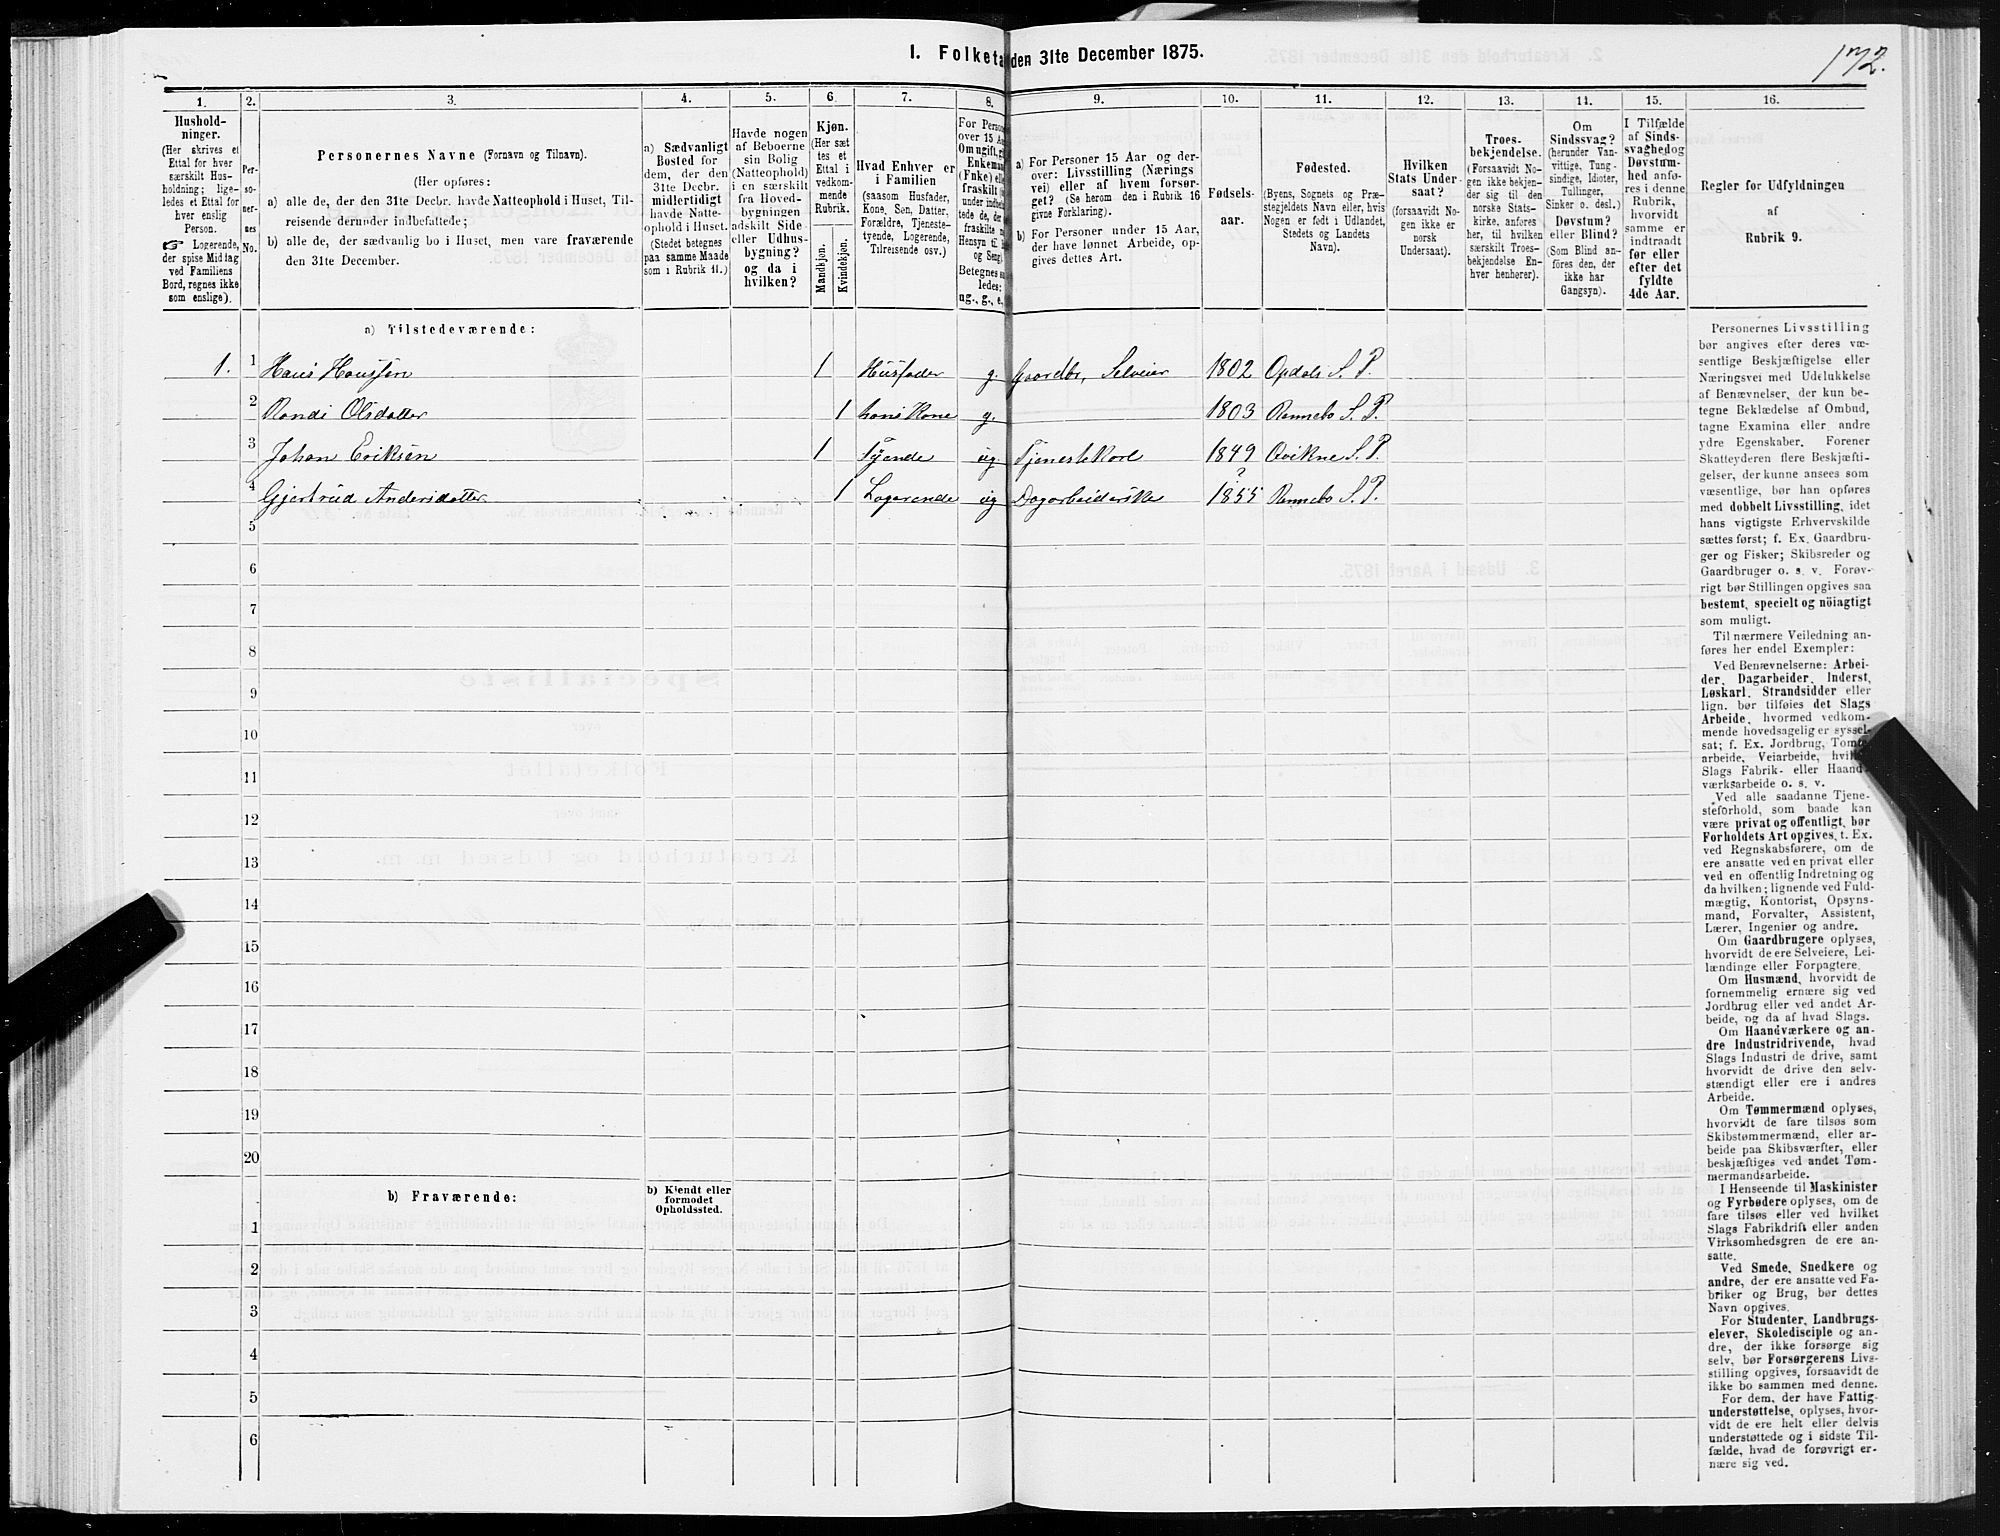 I. Folketa den 31te December 1875.
172.
1.
2.
3.
4.
5.
6
7.
8.
9.
10.
11.
12.
13.
14.
15.
16.
Hushold-
ninger.
(Her skrives et
Ettal for hver
særskilt Hus-
holdning; lige-
ledes et Ettal for
hver enslig
Person.
☞ Logerende,
der spise Midlag
ved Familiens
Bord, regnes ikke
som enslige).
Per-
so-
ner-
nes
No.
Personernes Navne (Fornavn og Tilnavn).
(Her opføres:
a) alle de, der den 31te Decbr. havde Natteophold i Huset, Til-
reisende derunder indbefattede;
b) alle de, der sædvanlig bo i Huset, men vare fraværende
den 31te December.
a) Sædvanligt
Bosted for
dem, der den
31te Decbr.
midlertidigt
havde Natte-
ophold i Huset.
(Stedet betegnes
paa samme Maade
som i Rubrik 11.)
Havde nogen
af Beboerne
sin Bolig
(Natteophold)
i en særskilt
fra Hoved-
bygningen
adskilt Side-
eller Udhus-
bygning?
og da i
hvilken?
Kjøn.
(Her sæt
tes et
Ettal i
vedkom-
mende
Rubrik.
Mandkjøn.
Kvindekjøn.
Hvad Enhver er
i Familien
(saasom Husfader,
Kone, Søn, Datter,
Forældre, Tjeneste-
tyende, Logerende,
Tilreisende osv.)
For Perso
over 15 Aa
Om ugift, gi
Enkeman
(Enke) ell
fraskilt
under indbe
tede de, der
fraskilte
Hensyn til
og Seng).
Betegnes s
ledes:
ug., g., e,
a) For Personer 15 Aar og der-
over: Livsstilling (Nærings
vei) eller af hvem forsør-
get? (Se herom den i Rubrik 16
givne Forklaring).
b) For Personer under 15 Aar,
der have lønnet Arbeide, op-
gives dettes Art.
Fødsels-
aar.
Fødested.
(Byens, Sognets og Præ-
stegjeldets Navn eller, hvis
Nogen er født i Udlandet,
Stedets og Landets
Navn).
Hvilken
Stats Under-
saat?
(forsaavidt No-
gen ikke er
norsk
Undersaat).
Troes-
bekjendelse.
(Forsaavidt No-
gen ikke bekjen-
der sig til den
norske Stats-
kirke, anføres
her, til hvilken
særskilt Troes-
bekjendelse En-
hver henhører).
Om
Sindssvag?
(herunder Van-
vittige, Tung-
sindige, Idioter,
Tullinger,
Sinker o. desl.)
Døvstum?
eller Blind?
(Som Blind an-
føres den, der
ikke har
Gangsyn).
I Tilfælde
af Sinds-
svaghed og
Døvstum-
hed anfø-
res i denne
Rubrik,
hvorvidt
samme er
indtraadt
før eller
efter det
fyldte
4de Aar.
Regler for Udfyldningen
af
Rubrik 9.
a) Tilstedeværende:
1. 1 Hans Hansson 1 Husfader g. Gaardbr, Selveier 1802 Opdals S. P.
2 Randi Olsdatter 1 hans Kone g. 1803 Rennebo S. P.
3 Johan Eriksen 1 Tyende ug. Tjenestekarl 1849 Qvikne S. P.
?
4 Gjertrud Andersdatter 1 Logerende ug Dagarbeiderske 1855 Rennebo S. P.
5
6
7
8
9
10
11
12
13
14
15
16
17
18
19
20
b) Fraværende:
b) Kjendt eller
formodet
Opholdssted.
1
2
3
4
5
6
Personernes Livsstilling
bør angives efter deres væ-
sentlige Beskjæftigelse eller
Næringsvei med Udelukkelse
af Benævnelser, der kun be-
tegne Beklædelse af Ombud,
tagne Examina eller andre
ydre Egenskaber. Forener
Skatteyderen flere Beskjæfti-
gelser, der kunne ansees som
væsentlige, bør han opføres
med dobbelt Livsstilling, idet
hans vigtigste Erhvervskilde
sættes først; f. Ex. Gaardbru-
ger og Fisker; Skibsreder og
Gaardbruger o. s. v. Forøv-
rigt bør Stillingen opgives saa
bestemt, specielt og nöiagtigt
som muligt.
Til nærmere Veiledning an-
føres her endel Exempler:
Ved Benævnelserne: Arbei-
der, Dagarbeider, Inderst,
Løskarl, Strandsidder eller
lign. bør tilføies det Slags
Arbeide, hvormed vedkom-
mende hovedsagelig er syssel-
sat; f. Ex. Jordbrug, Tomte-
arbeide, Veiarbeide, hvil
Slags Fabrik- eller Haand-
værksarbeide o. s. v.
Ved alle saadanne Tjene-
steforhold, som baade kan
være privat og offentligt, bør
Forholdets Art opgives, t. Ex.
ved Regnskabsførere, om de
ere ansatte ved en privat eller
ved en offentlig Indretning og
da hvilken; lignende ved Fuld-
mægtig, Kontorist, Opsyns-
mand, Forvalter, Assistent,
Lærer, Ingeniør og andre.
Om Gaardbrugere oplyses,
hvorvidt de ere Selveiere, Lei-
lændinge eller Forpagtere.
Om Husmænd, hvorvidt de
fornemmelig ernære sig ved
Jordbrug eller ved andet Ar-
beide, og da af hvad Slags.
Om Haandværkere og an-
dre Industridrivende, hvad
Slags Industri de drive, samt
hvorvidt de drive den selv-
stændigt eller ere i andres
Arbeide.
Om Tømmermænd oplyses,
hvorvidt de fare tilsøs som
Skibstømmermænd, eller ar-
beide paa Skibsværfter, eller
beskjæftiges ved andet Tøm-
mermandsarbeide.
I Henseende til Maskinister
og Fyrbødere oplyses, om de
fare tilsøs eller ved hvilket
Slags Fabrikdrift eller anden
Virksomhedsgren de ere an-
satte.
Ved Smede, Snedkere og
andre, der ere ansatte ved Fa-
briker og Brug, bør dettes
Navn opgives.
For Studenter, Landbrugs-
elever, Skoledisciple og an-
dre, der ikke forsørge sig
selv, bør Forsørgerens Livs-
stilling opgives, forsaavidt de
ikke bo sammen med denne.
For dem, der have Fattig-
understøttelse, oplyses, hvor-
vidt de ere helt eller delvis
understøttede og i sidste Til-
fælde, hvad de forøvrigt er-
nære sig ved.